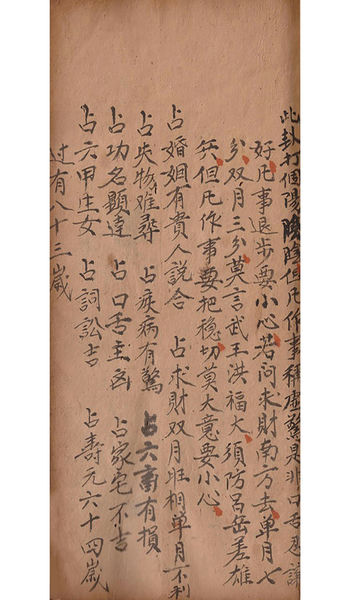 此卦打個陽陰但凡作事稱虛驚是非口舌忍讓
好凡事退步要小心若問求財南方去单月七
分双月三分莫言武王洪福大須防呂岳差雄
兵但凡作事要把穏切莫大意要小心
占婚姻有貴人說合 占求財双月旺相单月不利
占失物难尋 占疾病有驚 占六畜有損
占功名顯達 占口舌主凶 占家宅不吉
占六甲生女 占詞訟吉 占壽元六十四歲
过有八十三歲